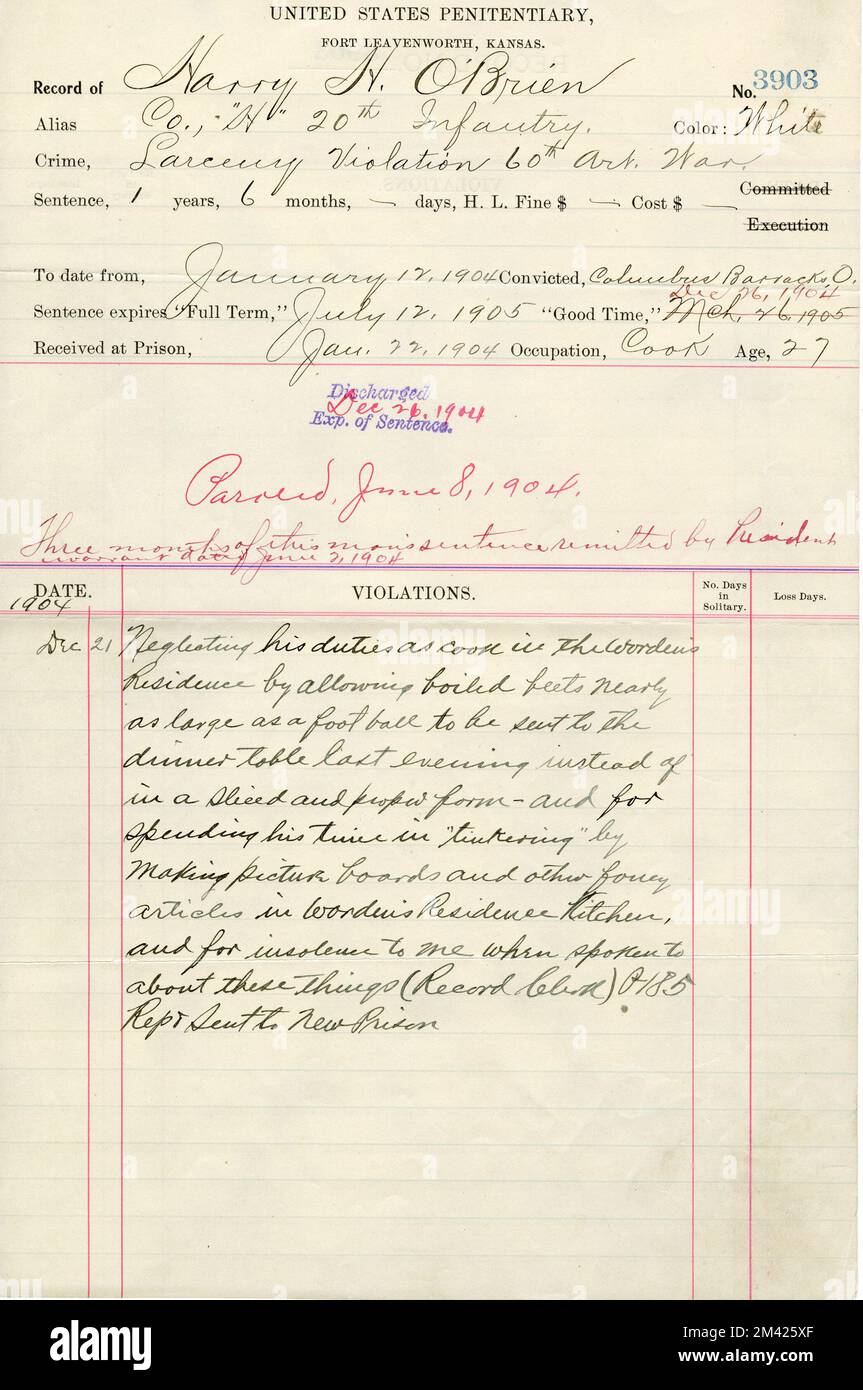 UNITED STATES PENITENTIARY,
FORT LEAVENWORTH, KANSAS.
Record of Harry H. O'Brien No. 3903
Alias Co., "H" 20th Infantry. Color: White
Crime, Larceny Violation 60th Art. War.
Sentence, 1 years, 6 months, — days, H. L. Fine $ — Cost $ — Committed
Execution
To date from, January 12, 1904 Convicted, Columbus Barracks, O.
Dec 26, 1904
Sentence expires "Full Term," July 12, 1905 "Good Time," Mch. 26, 1905
Received at Prison, Jan. 22, 1904 Occupation, Cook Age, 27
Discharged
Dec 26, 1904
Exp. of Sentence.
June 8, 1904.
Three months of this man's sentence remitted by President
warrant dated June 2, 1904
DATE. VIOLATIONS. No. Days in Solitary. Loss Days.
1904
Dec 21 Neglecting his duties as cook in the Warden's
Residence by allowing boiled beets nearly
as large as a foot ball to be sent to the
dinner table last evening instead of
in a sliced and proper form - and for
spending his time in "tinkering" by
making picture boards and other fancy
articles in Warden's Residence Kitchen,
and for insolence to me when spoken to
about these things (Record Clerk) P185
Repr Sent to New Prison
alamy
Image ID: 2M425XF
www.alamy.com